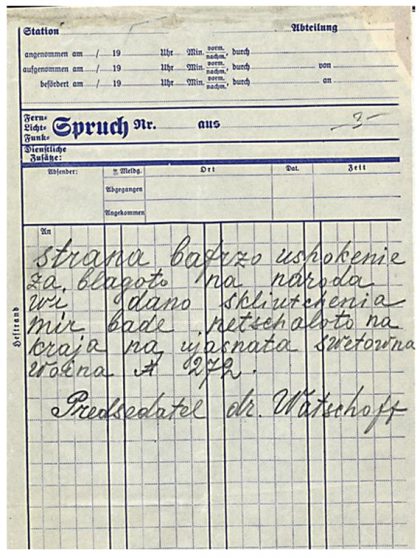 Station Abteilung
angenommen am / 19 Uhr Min. vorm. nachm. durch
aufgenommen am / 19 Uhr Min. vorm. nachm. durch von
befördert am / 19 Uhr Min. vorm. nachm. durch an
Fern-
Licht- Spruch Nr. aus 3
Funk-
Dienstliche
Zusätze:
Absender: Meldg. Ort Dat. Zeit
Abgegangen
Angekommen
An
Heftrand
strana bafrzo uspokenie
za blagoto na naroda
wi dano skliutchenia
mir bade netschaloto na
kraja na ujasnata swetowna
woina A 272.
Predsedatel dr. Watschoff